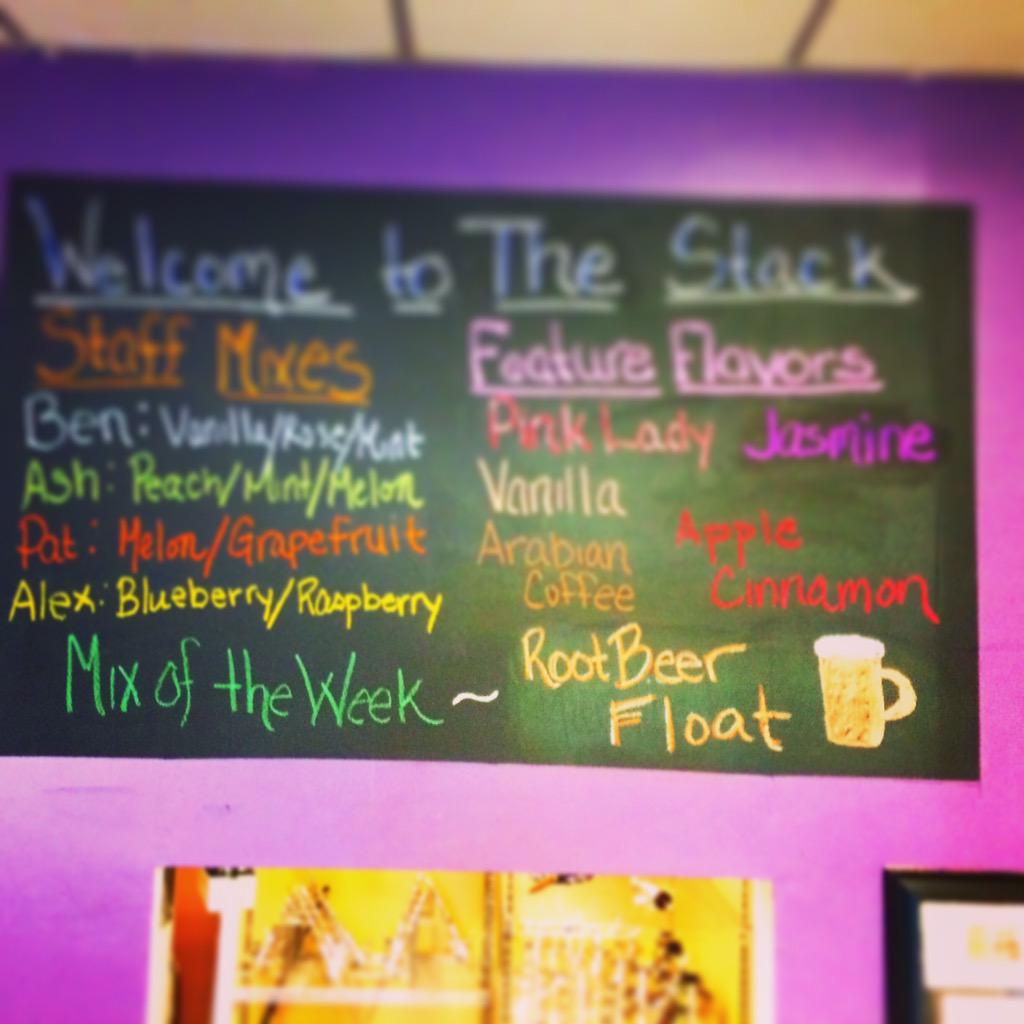 Welcome to The Stack
Staff Mixes
Ben: Vanilla/Rose/Mint
Ash: Peach/Mint/Melon
Pat: Melon/Grapefruit
Alex: Blueberry/Raspberry
Feature Flavors
Pink Lady Jasmine
Vanilla
Arabian
Coffee
Apple
Cinnamon
Mix of the Week ~ Root Beer
Float